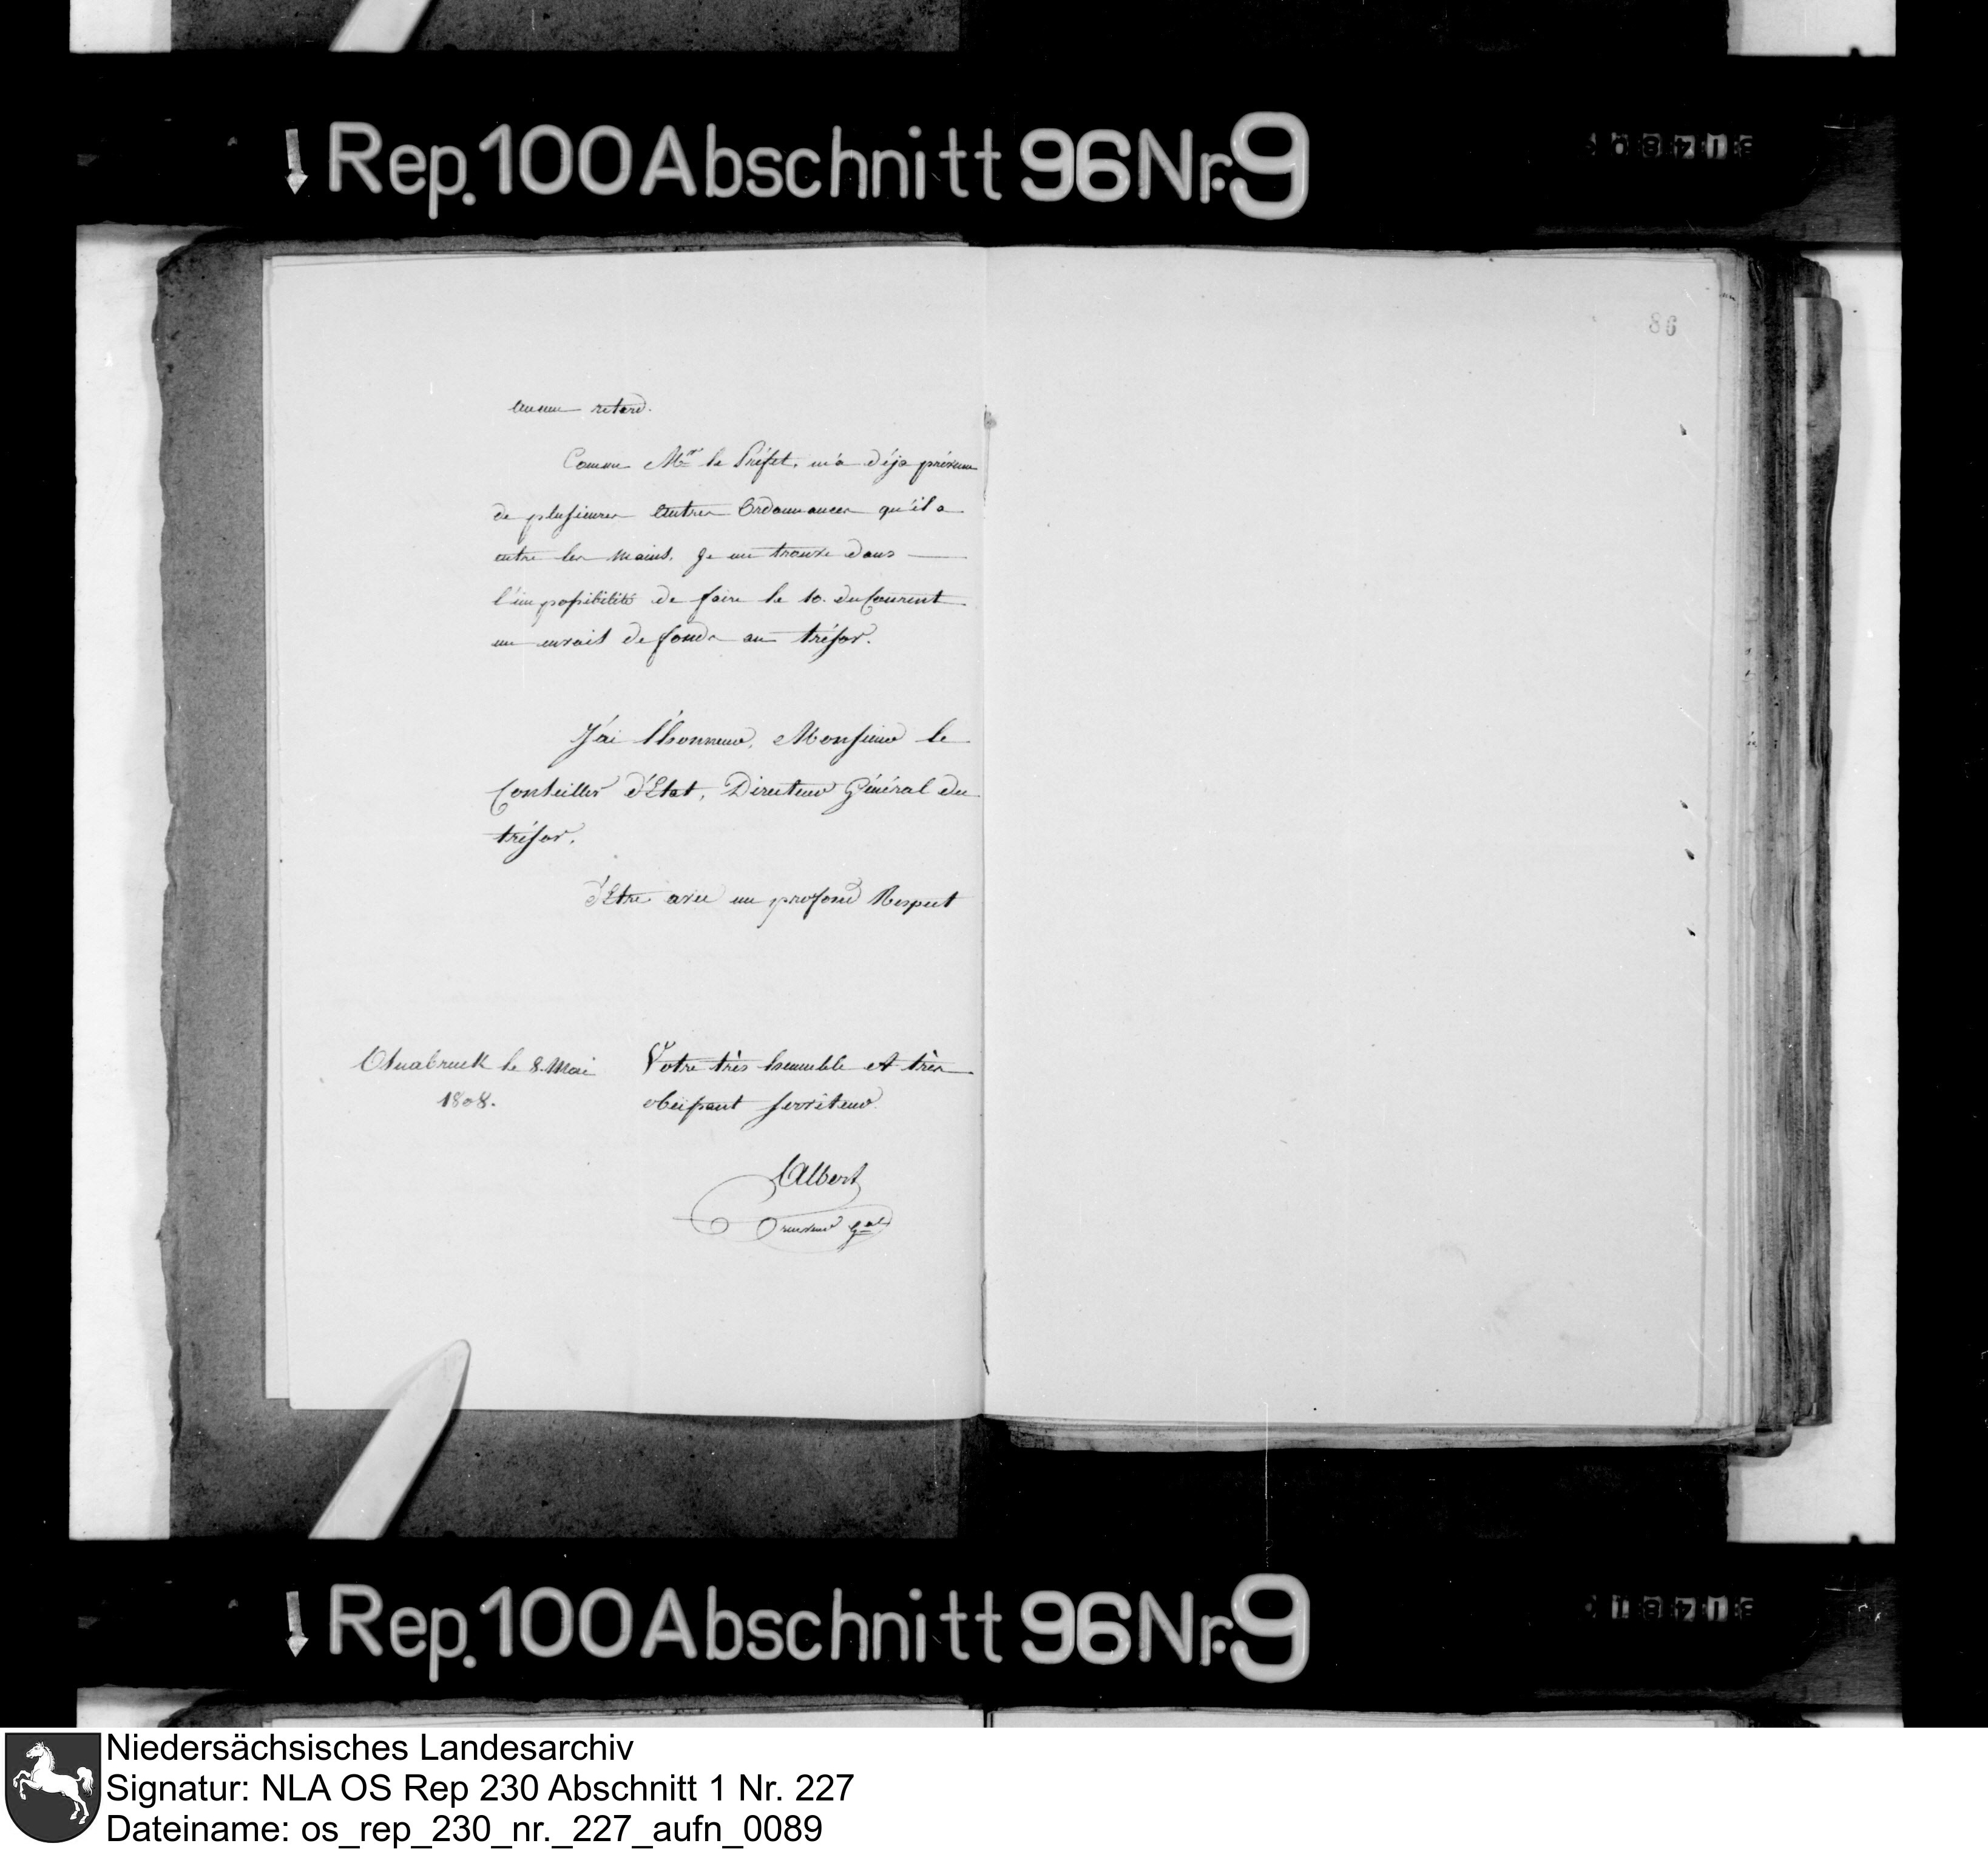 Rep. 100 Abschnitt 96 Nr. 9
86
Aucun retard.
Comme Mr. le Préfet, m'a déja prévenu
de plusieures Autres Ordonnances qu'il a
entre les mains. Je me trouve dans
l'impossibilité de faire le 10. du Courent
un envait de fonds au trésor.
J'ai l'honneur, Monsieur le
Conseiller d'Etat, Directeur Général du
trésor.
d'Etre avec un profond Respect
Osnabruck le 8. Mai
1808.
Votre très humble et très
obeissant serviteur.
Albert
Receveur gal
Rep. 100 Abschnitt 96 Nr. 9
Niedersächsisches Landesarchiv
Signatur: NLA OS Rep 230 Abschnitt 1 Nr. 227
Dateiname: os_rep_230_nr._227_aufn_0089